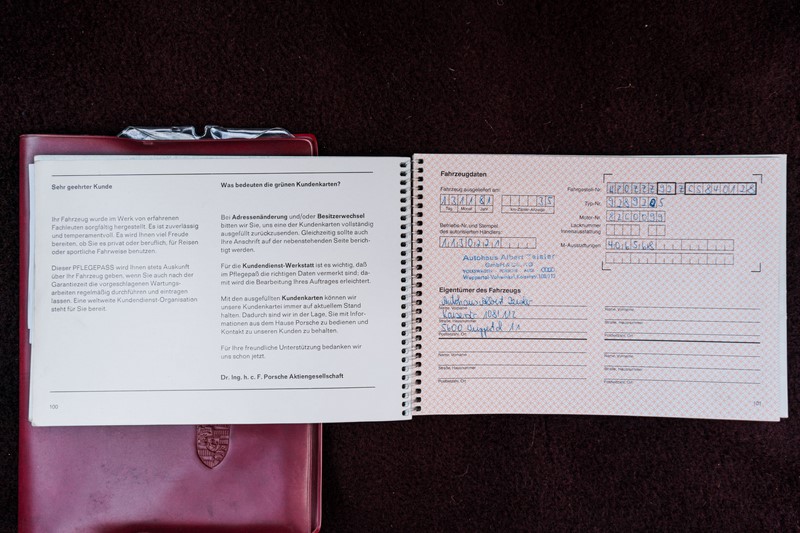 Sehr geehrter Kunde
Ihr Fahrzeug wurde im Werk von erfahrenen
Fachleuten sorgfältig hergestellt. Es ist zuverlässig
und temperamentvoll. Es wird Ihnen viel Freude
bereiten, ob Sie es privat oder beruflich, für Reisen
oder sportliche Fahrweise benutzen.
Dieser PFLEGEPASS wird Ihnen stets Auskunft
über Ihr Fahrzeug geben, wenn Sie auch nach der
Garantiezeit die vorgeschlagenen Wartungs-
arbeiten regelmäßig durchführen und eintragen
lassen. Eine weltweite Kundendienst-Organisation
steht für Sie bereit.
100
Was bedeuten die grünen Kundenkarten?
Bei Adressenänderung und/oder Besitzerwechsel
bitten wir Sie, uns eine der Kundenkarten vollständig
ausgefüllt zurückzusenden. Gleichzeitig sollte auch
Ihre Anschrift auf der nebenstehenden Seite berich-
tigt werden.
Für die Kundendienst-Werkstatt ist es wichtig, daß
im Pflegepaß die richtigen Daten vermerkt sind; da-
mit wird die Bearbeitung Ihres Auftrages erleichtert.
Mit den ausgefüllten Kundenkarten können wir
unsere Kundenkartei immer auf aktuellem Stand
halten. Dadurch sind wir in der Lage, Sie mit Infor-
mationen aus dem Hause Porsche zu bedienen und
Kontakt zu unseren Kunden zu behalten.
Für Ihre freundliche Unterstützung bedanken wir
uns schon jetzt.
Dr. Ing. h. c. F. Porsche Aktiengesellschaft
Fahrzeugdaten
Fahrzeug ausgeliefert am:
131181
35
Tag Monat Jahr
km-Zähler-Anzeige
Betriebs-Nr. und Stempel
des autorisierten Händlers:
Autohaus Albert
Fahrgestell-Nr.
Typ-Nr.
Motor-Nr.
Lacknummer
Innenausstattung
M-Ausstattungen
Eigentümer des Fahrzeugs
Autohaus Albert
Name, Vorname
Kaiserstr. 108/112
Straße, Hausnummer
5600 Wuppertal 11
Postleitzahl, Ort
Name, Vorname
Straße, Hausnummer
Postleitzahl, Ort
Name, Vorname
Straße, Hausnummer
Postleitzahl, Ort
Name, Vorname
Straße, Hausnummer
Postleitzahl, Ort
101